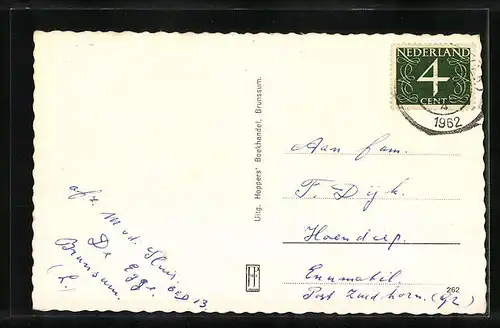 NEDERLAND
4
CENT
1962
Aan fam.
F. Dijk.
Hoendiep.
Enumatil
Post Zuidhorn. (Gr)
Uitg. Hoppers' Boekhandel, Brunssum.
262
H
afz. M v d
De Egge. BED 13.
Brunssum.
(L.)